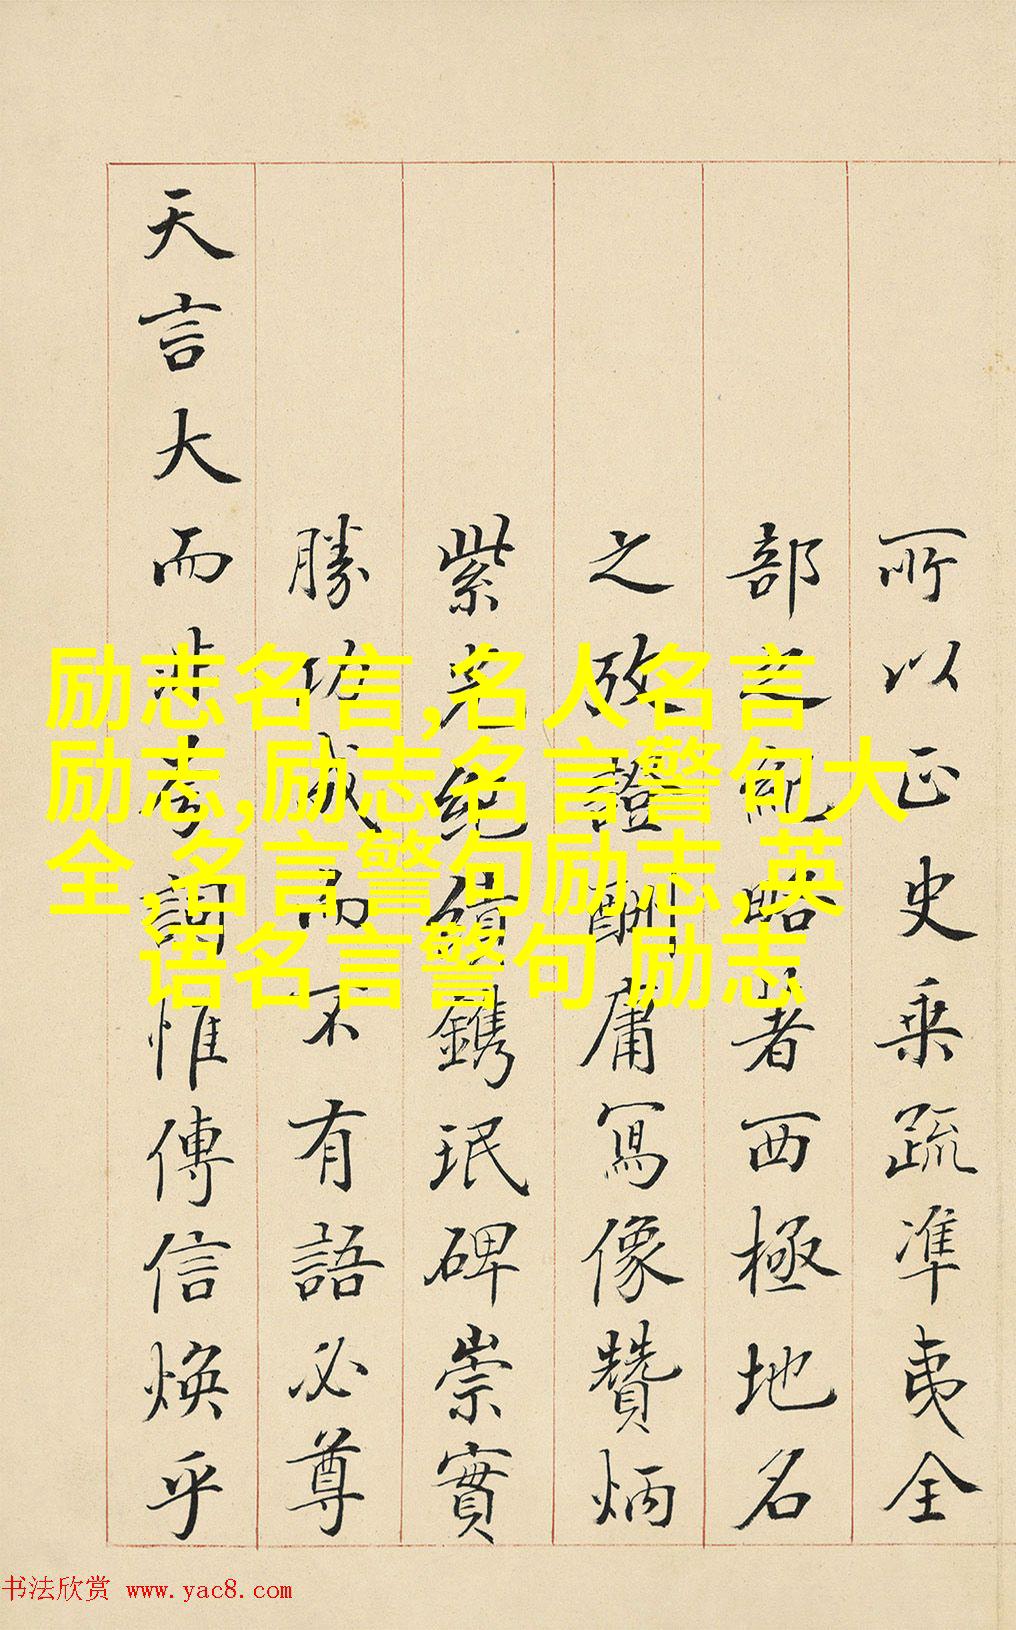 所以正史乘疏準夷全
部之紀略者西極地名
之攷證酬庸寫像贊炳
紫光絕績鐫珉碑崇實
勝功成而不有語必尊
天言大而非夸詞惟傳信煥乎
励志名言,名人名言
励志,励志名言警句大
全,名言警句励志,英
语名言警句 励志
书法欣赏 www.yac8.com